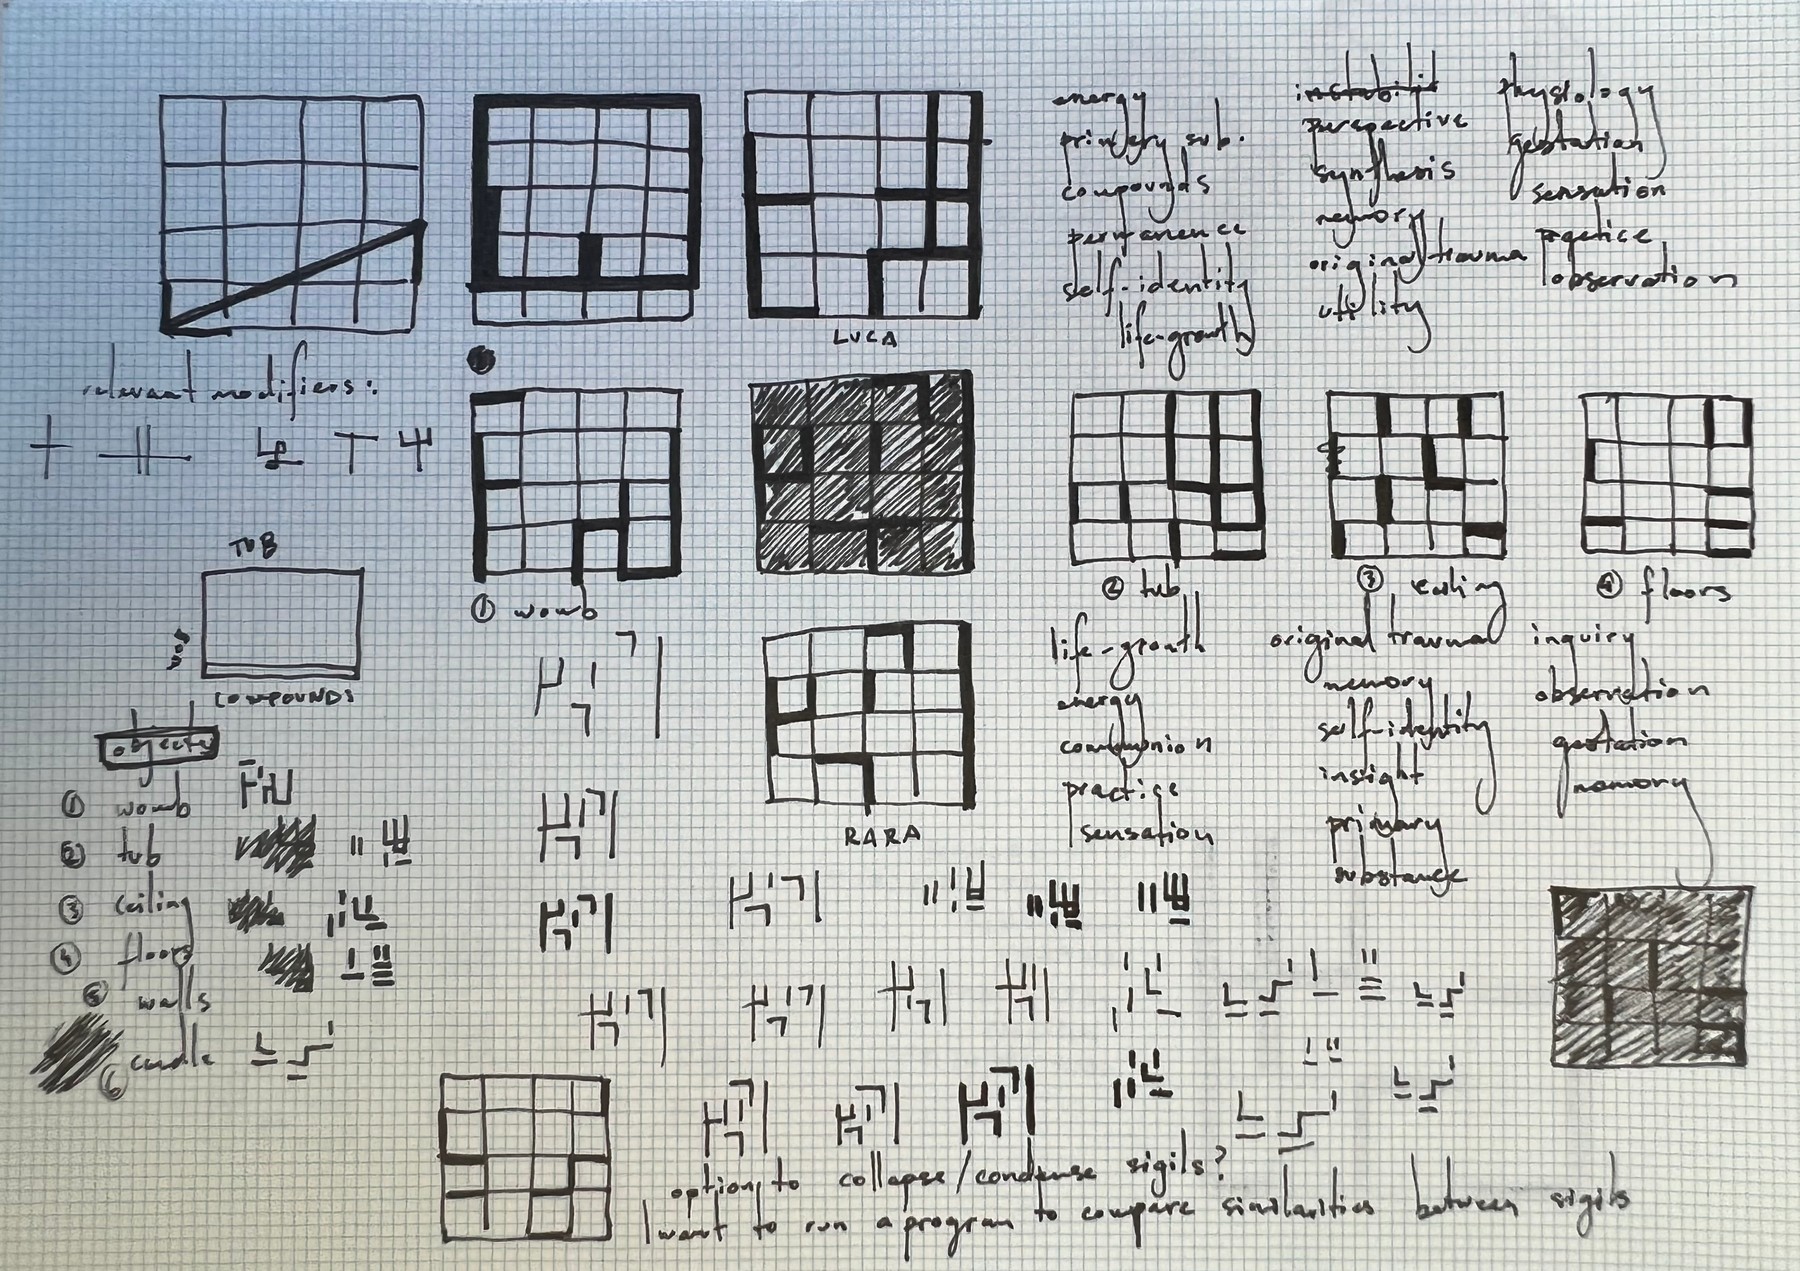 LUCA
energy
primary sub.
compounds
permanence
self-identity
life-growth
instabilit
perspective
synthesis
memory
original trauma
utility
physiology
gestation
sensation
practice
observation
relevant modifiers:
① womb
② tub
③ ceiling
④ floors
TUB
COMPOUNDS
objects
① womb
② tub
③ ceiling
④ floors
⑤ walls
⑥ candle
RARA
life-growth
energy
communion
practice
sensation
original trauma
memory
self-identity
insight
primary
substance
inquiry
observation
gestation
memory
option to collapse/condense sigils?
I want to run a program to compare similarities between sigils